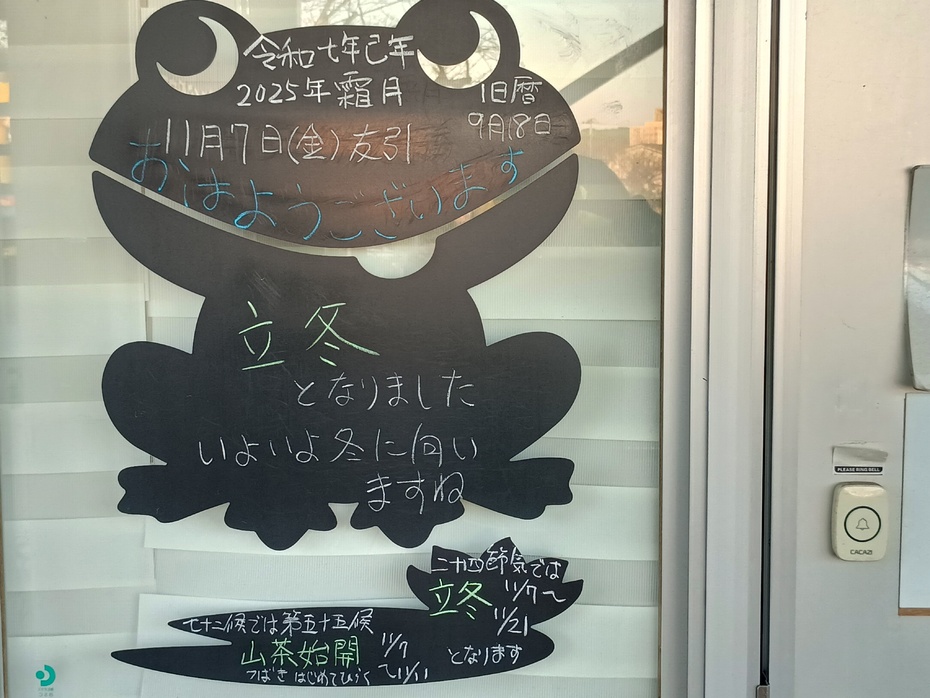 令和七年己年
2025年霜月
旧暦
9月18日
11月7日(金)友引
おはようございます
立冬
となりました
いよいよ冬に向い
ますね
二十四節気では
立冬 11/7〜
11/21
となります
七十二候では第五十五候
山茶始開 11/7
〜11/11
つばきはじめてひらく
PLEASE RING BELL
CACAZI